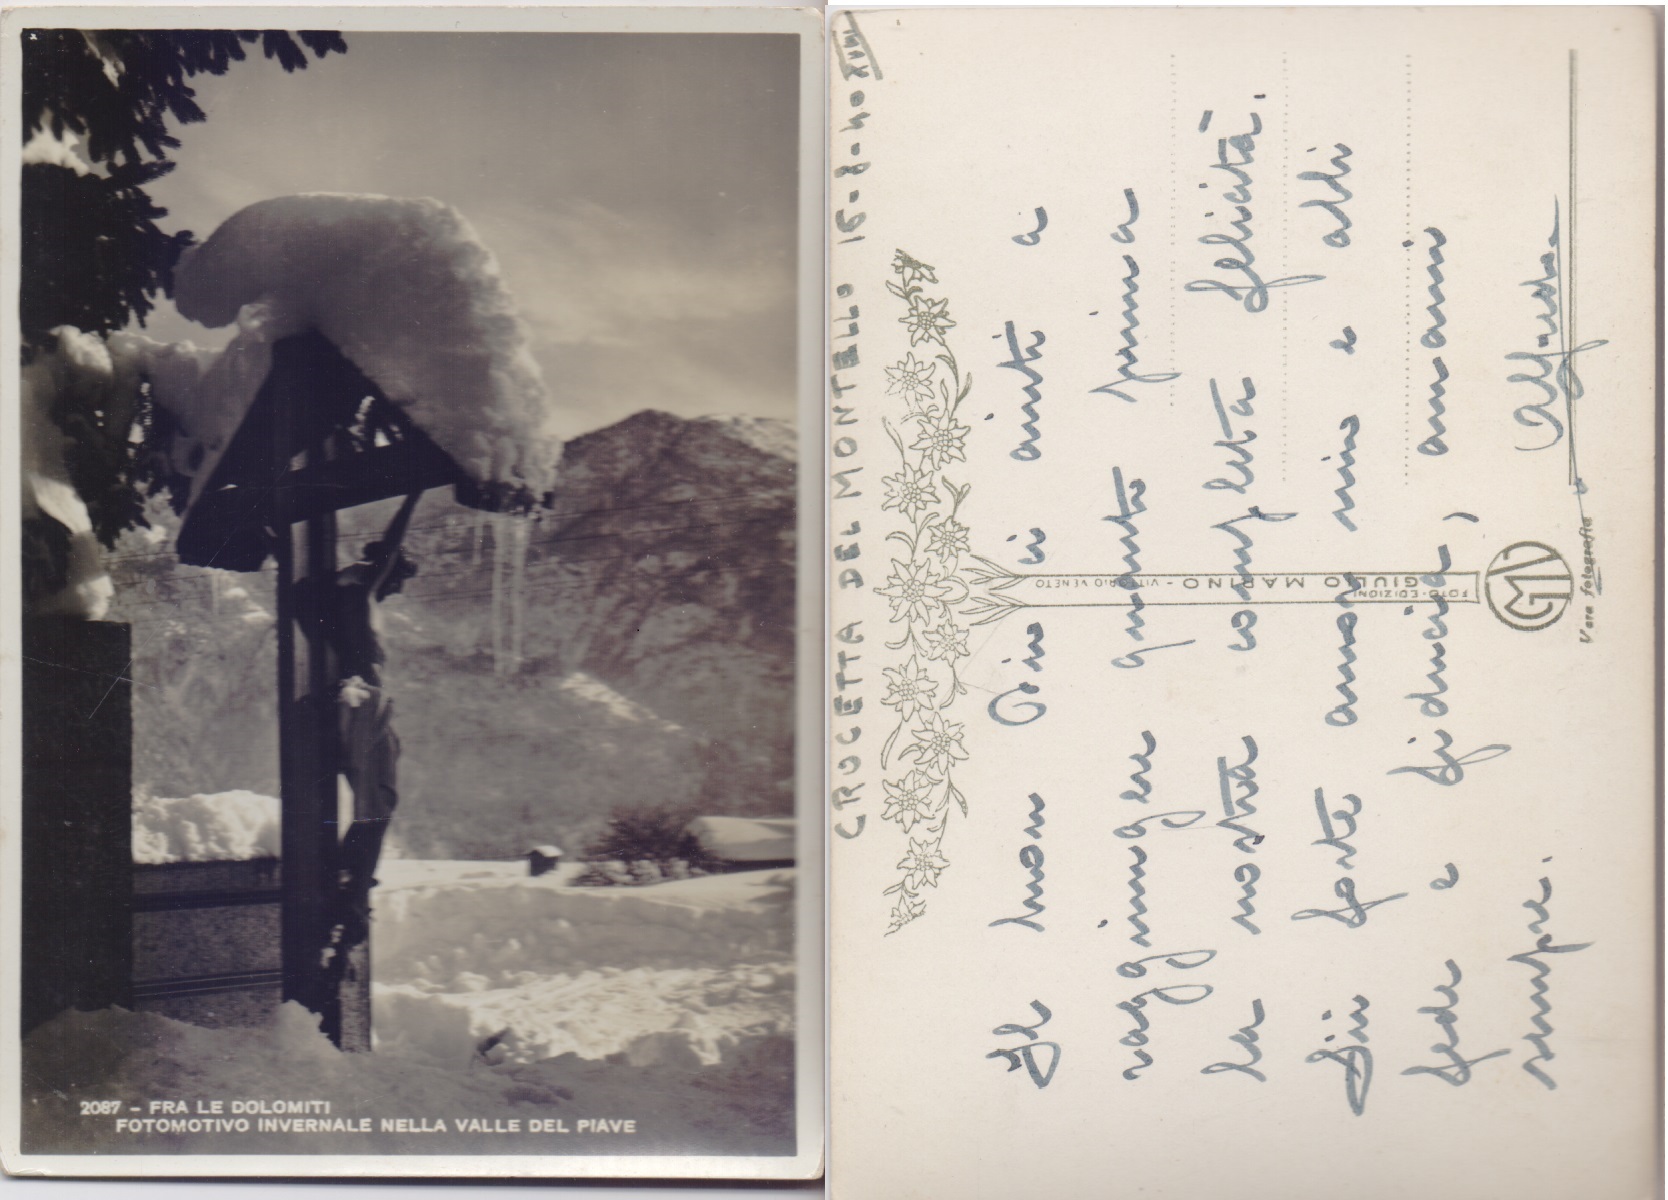 2087 - FRA LE DOLOMITI
FOTOMOTIVO INVERNALE NELLA VALLE DEL PIAVE
CROCETTA DEL MONTELLO 15-8-40 XVIII
Il buon Dio ci aiuti a
raggiungere quanto prima
la nostra completa felicità.
Sii forte amor mio e abbi
fede e fiducia, amami
sempre.
FOTO-EDIZIONI
GIULIO MARINO - VITTORIO VENETO
GMV
Vera fotografia